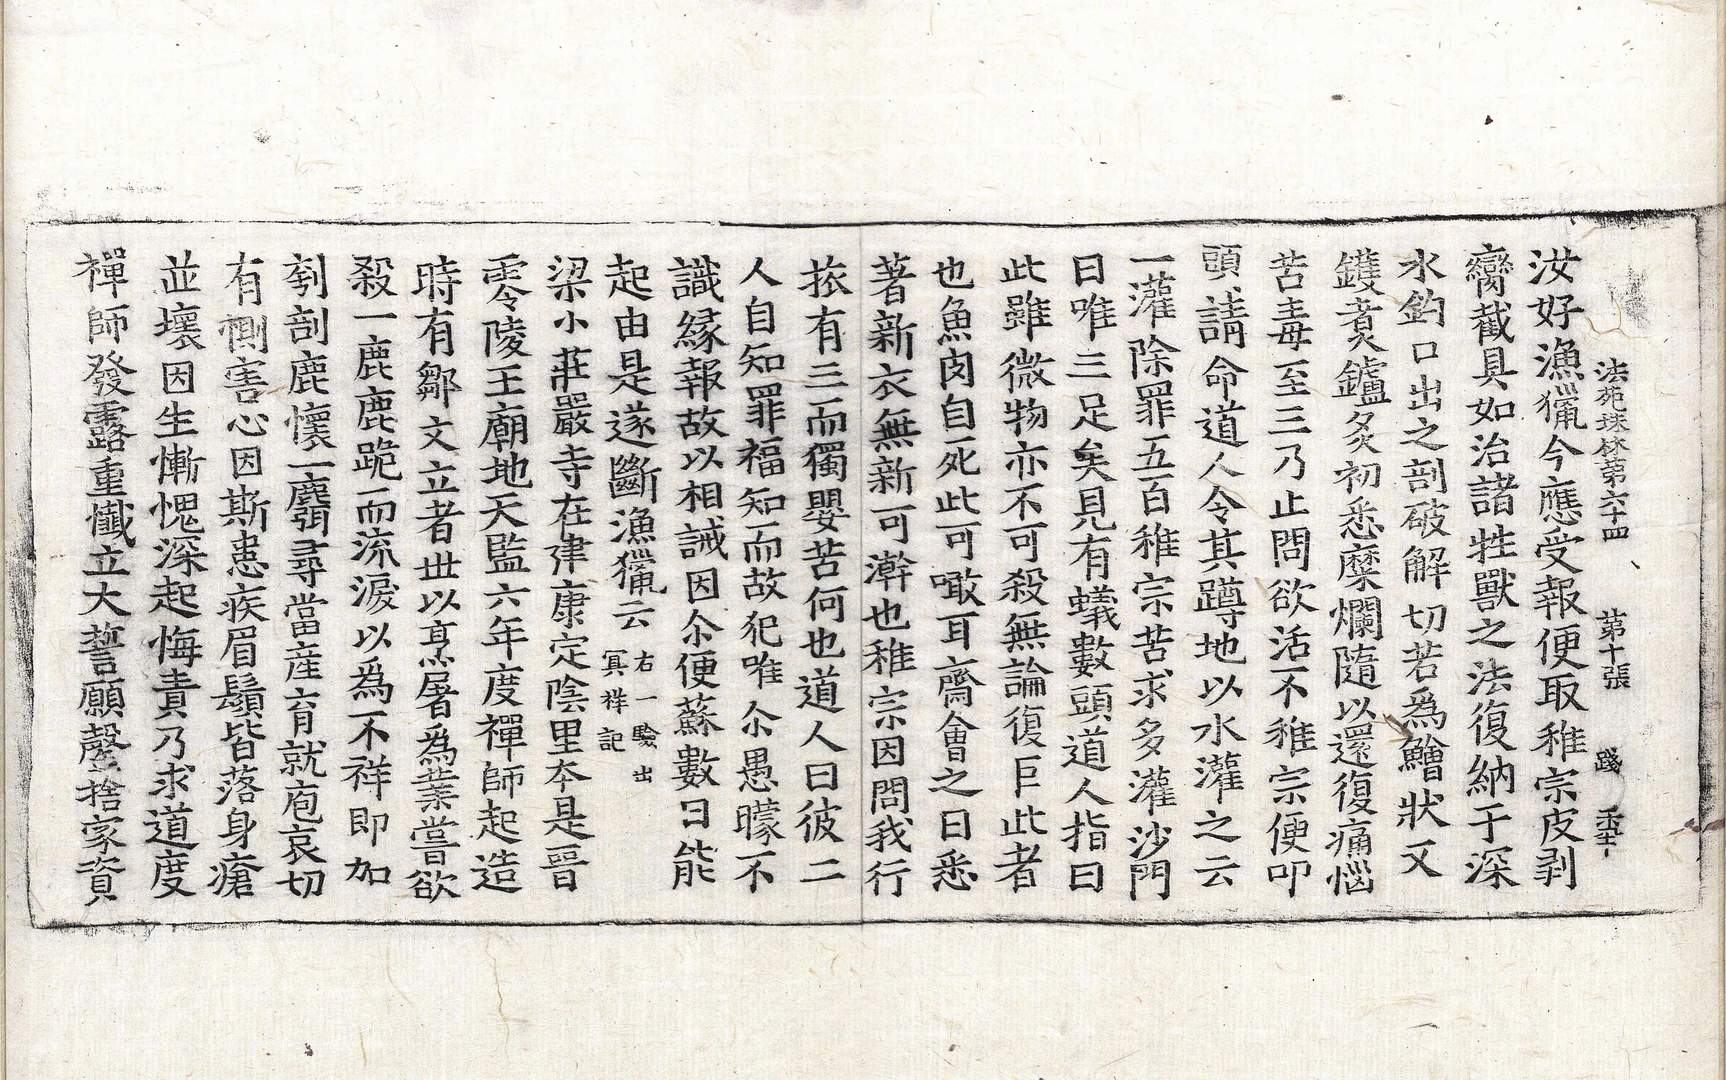 法苑珠林第六十四　第十張　踐
汝好漁獵今應受報便取稚宗皮剥
臠截具如治諸牲獸之法復納于深
水鉤口出之剖破解切若爲鱠狀又
鑊煑鑪炙初悉糜爛隨以還復痛惱
苦毒至三乃止問欲活不稚宗便叩
頭請命道人令其蹲地以水灌之云
一灌除罪五百稚宗苦求多灌沙門
曰唯三足矣見有蟻數頭道人指曰
此雖微物亦不可殺無論復巨此者
也魚肉自死此可噉耳齋會之日悉
著新衣無新可澣也稚宗因問我行
旅有三而獨嬰苦何也道人曰彼二
人自知罪福知而故犯唯尒愚矇不
識緣報故以相誡因尒便蘇數日能
起由是遂斷漁獵云右一驗出冥祥記
梁小莊嚴寺在建康定陰里本是晉
零陵王廟地天監六年度禪師起造
時有鄒文立者世以烹屠為業嘗欲
殺一鹿鹿跪而流淚以爲不祥即加
刳剖鹿懷一麛尋當產育就庖哀切
有惻害心因斯患疾眉鬚皆落身瘡
並壞因生慚愧深起悔責乃求道度
禪師發露重懺立大誓願罄捨家資